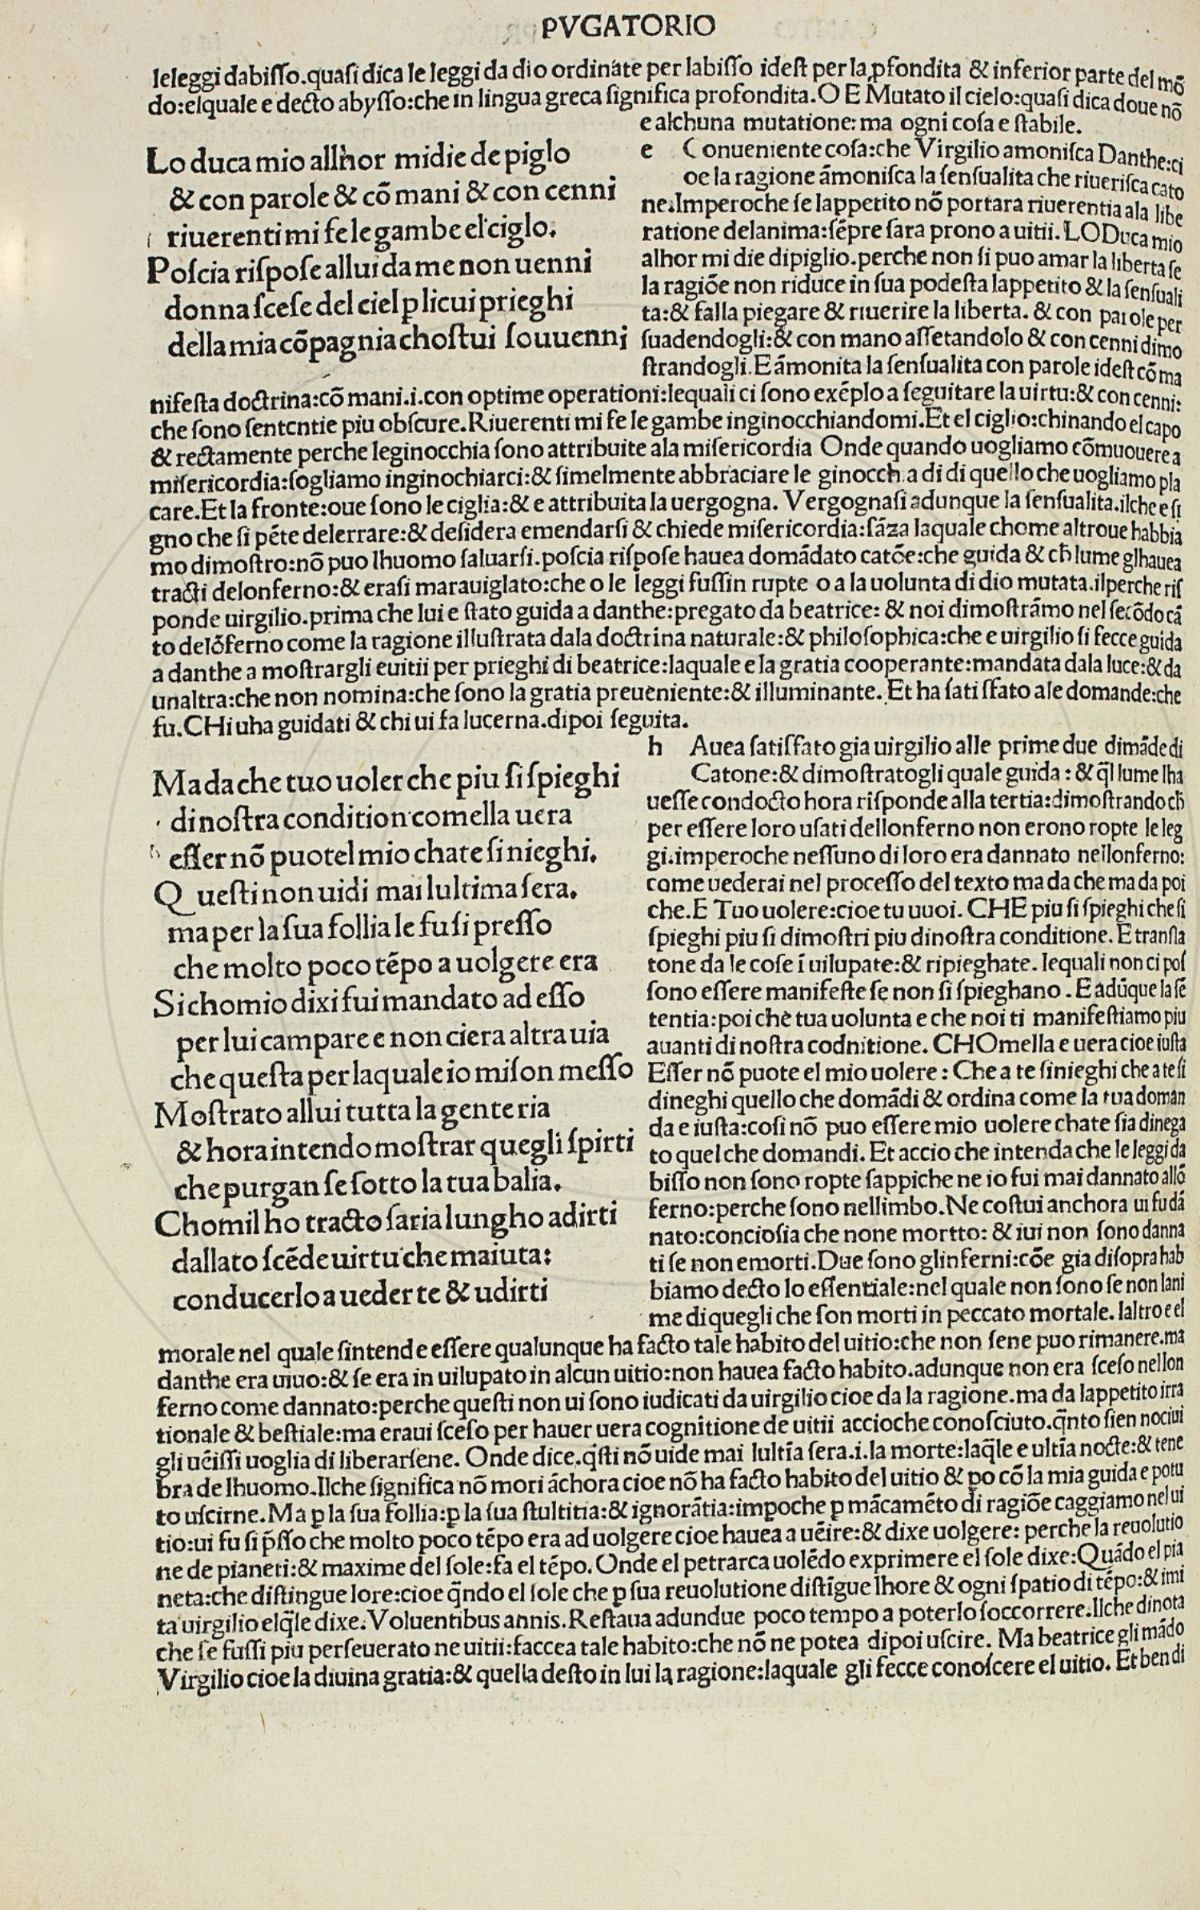 PVGATORIO
leleggi dabiſſo.quaſi dica le leggi da dio ordinate per labiſſo ideſt per la ꝓfondita & inferior parte del mō
do:elquale e decto abyſſo:che in lingua greca ſignifica profondita.O E Mutato il cielo:quaſi dica doue nō
e alchuna mutatione:ma ogni coſa e ſtabile.
Lo duca mio allhor midie de piglo
& con parole & cō mani & con cenni
riuerenti mi fe le gambe el ciglo.
Poſcia riſpoſe allui da me non uenni
donna ſceſe del ciel p licui prieghi
della mia cōpagnia choſtui ſouuenni
e Conueniente coſa:che Virgilio amoniſca Danthe:ci
oe la ragione āmoniſca la ſenſualita che riueriſca cato
ne.Imperoche ſe lappetito nō portara riuerentia ala libe
ratione delanima:ſēpre ſara prono a uitii.LODuca mio
alhor mi die dipiglio.perche non ſi puo amar la liberta ſe
la ragiōe non riduce in ſua podeſta lappetito & la ſenſuali
ta:& falla piegare & riuerire la liberta. & con parole per
ſuadendogli:& con mano aſſetandolo & con cenni dimo
ſtrandogli.E āmonita la ſenſualita con parole ideſt cō ma
nifeſta doctrina:cō mani.i.con optime operationi:lequali ci ſono exēplo a ſeguitare la uirtu:& con cenni:
che ſono ſentcntie piu obſcure.Riuerenti mi fe le gambe inginocchiandomi.Et el ciglio:chinando el capo
& rectamente perche leginocchia ſono attribuite ala miſericordia Onde quando uogliamo cōmuouere a
miſericordia:ſogliamo inginochiarci:& ſimelmente abbraciare le ginocch a di di quello che uogliamo pla
care.Et la fronte:oue ſono le ciglia:& e attribuita la uergogna. Vergognaſi adunque la ſenſualita.ilche e ſi
gno che ſi pēte delerrare:& deſidera emendarſi & chiede miſericordia:ſāza laquale chome altroue habbia
mo dimoſtro:nō puo lhuomo ſaluarſi.poſcia riſpoſe hauea domādato catōe:che guida & cħ lume glhauea
tracti delonferno:& eraſi marauiglato:che o le leggi fuſſin rupte o a la uolunta di dio mutata.ilperche riſ
ponde uirgilio.prima che lui e ſtato guida a danthe:pregato da beatrice: & noi dimoſtrāmo nel ſecōdo cā
to delōferno come la ragione illuſtrata dala doctrina naturale:& philoſophica:che e uirgilio ſi fecce guida
a danthe a moſtrargli euitii per prieghi di beatrice:laquale e la gratia cooperante:mandata dala luce:& da
unaltra:che non nomina:che ſono la gratia preueniente:& illuminante. Et ha ſatiſſato ale domande:che
fu.CHi uha guidati & chi ui fa lucerna.dipoi ſeguita.
Ma da che tuo uoler che piu ſi ſpieghi
di noſtra condition comella uera
eſſer nō puotel mio chate ſi nieghi.
Queſti non uidi mai lultima ſera.
ma per la ſua follia le fu ſi preſſo
che molto poco tēpo a uolgere era
Si chomio dixi fui mandato ad eſſo
per lui campare e non ciera altra uia
che queſta per laquale io miſon meſſo
Moſtrato allui tutta la gente ria
& hora intendo moſtrar quegli ſpirti
che purgan ſe ſotto la tua balia.
Chomil ho tracto ſaria lungho adirti
dallato ſcēde uirtu che maiuta:
conducerlo a ueder te & udirti
h Auea ſatiſfato gia uirgilio alle prime due dimāde di
Catone:& dimoſtratogli quale guida : & q̄l lume lha
ueſſe condocto hora riſponde alla tertia:dimoſtrando cħ
per eſſere loro uſati dellonferno non erono ropte le leg
gi.imperoche neſſuno di loro era dannato nellonferno:
come uederai nel proceſſo del texto ma da che ma da poi
che.E Tuo uolere:cioe tu uuoi. CHE piu ſi ſpieghi che ſi
ſpieghi piu ſi dimoſtri piu dinoſtra conditione. E tranſla
tone da le coſe ī uilupate:& ripieghate. lequali non ci poſ
ſono eſſere manifeſte ſe non ſi ſpieghano . E adūque la ſē
tentia:poi che tua uolunta e che noi ti manifeſtiamo piu
auanti di noſtra codnitione. CHOmella e uera cioe iuſta
Eſſer nō puote el mio uolere : Che a te ſinieghi che a te ſi
dineghi quello che domādi & ordina come la tua doman
da e iuſta:coſi nō puo eſſere mio uolere chate ſia dinega
to quel che domandi. Et accio che intenda che le leggi da
biſſo non ſono ropte ſappiche ne io fui mai dannato allō
ferno:perche ſono nellimbo. Ne coſtui anchora ui fu dā
nato:concioſia che none mortto: & iui non ſono danna
ti ſe non emorti. Due ſono glinferni:cōe gia diſopra hab
biamo decto lo eſſentiale:nel quale non ſono ſe non lani
me di quegli che ſon morti in peccato mortale. laltro e el
morale nel quale ſintende eſſere qualunque ha facto tale habito del uitio:che non ſene puo rimanere.ma
danthe era uiuo:& ſe era in uilupato in alcun uitio:non hauea facto habito.adunque non era ſceſo nellon
ferno come dannato:perche queſti non ui ſono iudicati da uirgilio cioe da la ragione.ma da lappetito irra
tionale & beſtiale:ma eraui ſceſo per hauer uera cognitione de uitii accioche conoſciuto.q̄nto ſien nociui
gli uēiſſi uoglia di liberarſene. Onde dice.q̄ſti nō uide mai lultīa ſera.i.la morte:laq̄le e ultīa nocte:& tene
bra de lhuomo.Ilche ſignifica nō mori āchora cioe nō ha facto habito del uitio & ꝑo cō la mia guida e potu
to uſcirne. Ma ꝑ la ſua follia:ꝑ la ſua ſtultitia:& ignorātia:impoche ꝑ mācamēto di ragiōe caggiamo nel ui
tio:ui fu ſi p̄ſſo che molto poco tēpo era ad uolgere cioe hauea a uēire:& dixe uolgere: perche la reuolutio
ne de pianeti:& maxime del ſole:fa el tēpo. Onde el petrarca uolēdo exprimere el ſole dixe:Quādo el pia
neta:che diſtingue lore:cioe q̄ndo el ſole che ꝑ ſua reuolutione diſtīgue lhore & ogni ſpatio di tēpo:& imi
ta uirgilio elq̄le dixe.Voluentibus annis.Reſtaua adundue poco tempo a poterlo ſoccorrere.Ilche dinota
che ſe fuſſi piu perſeuerato ne uitii:faccea tale habito:che nō ne potea dipoi uſcire. Ma beatrice gli mādo
Virgilio cioe la diuina gratia:& quella deſto in lui la ragione:laquale gli fecce conoſcere el uitio. Et ben di